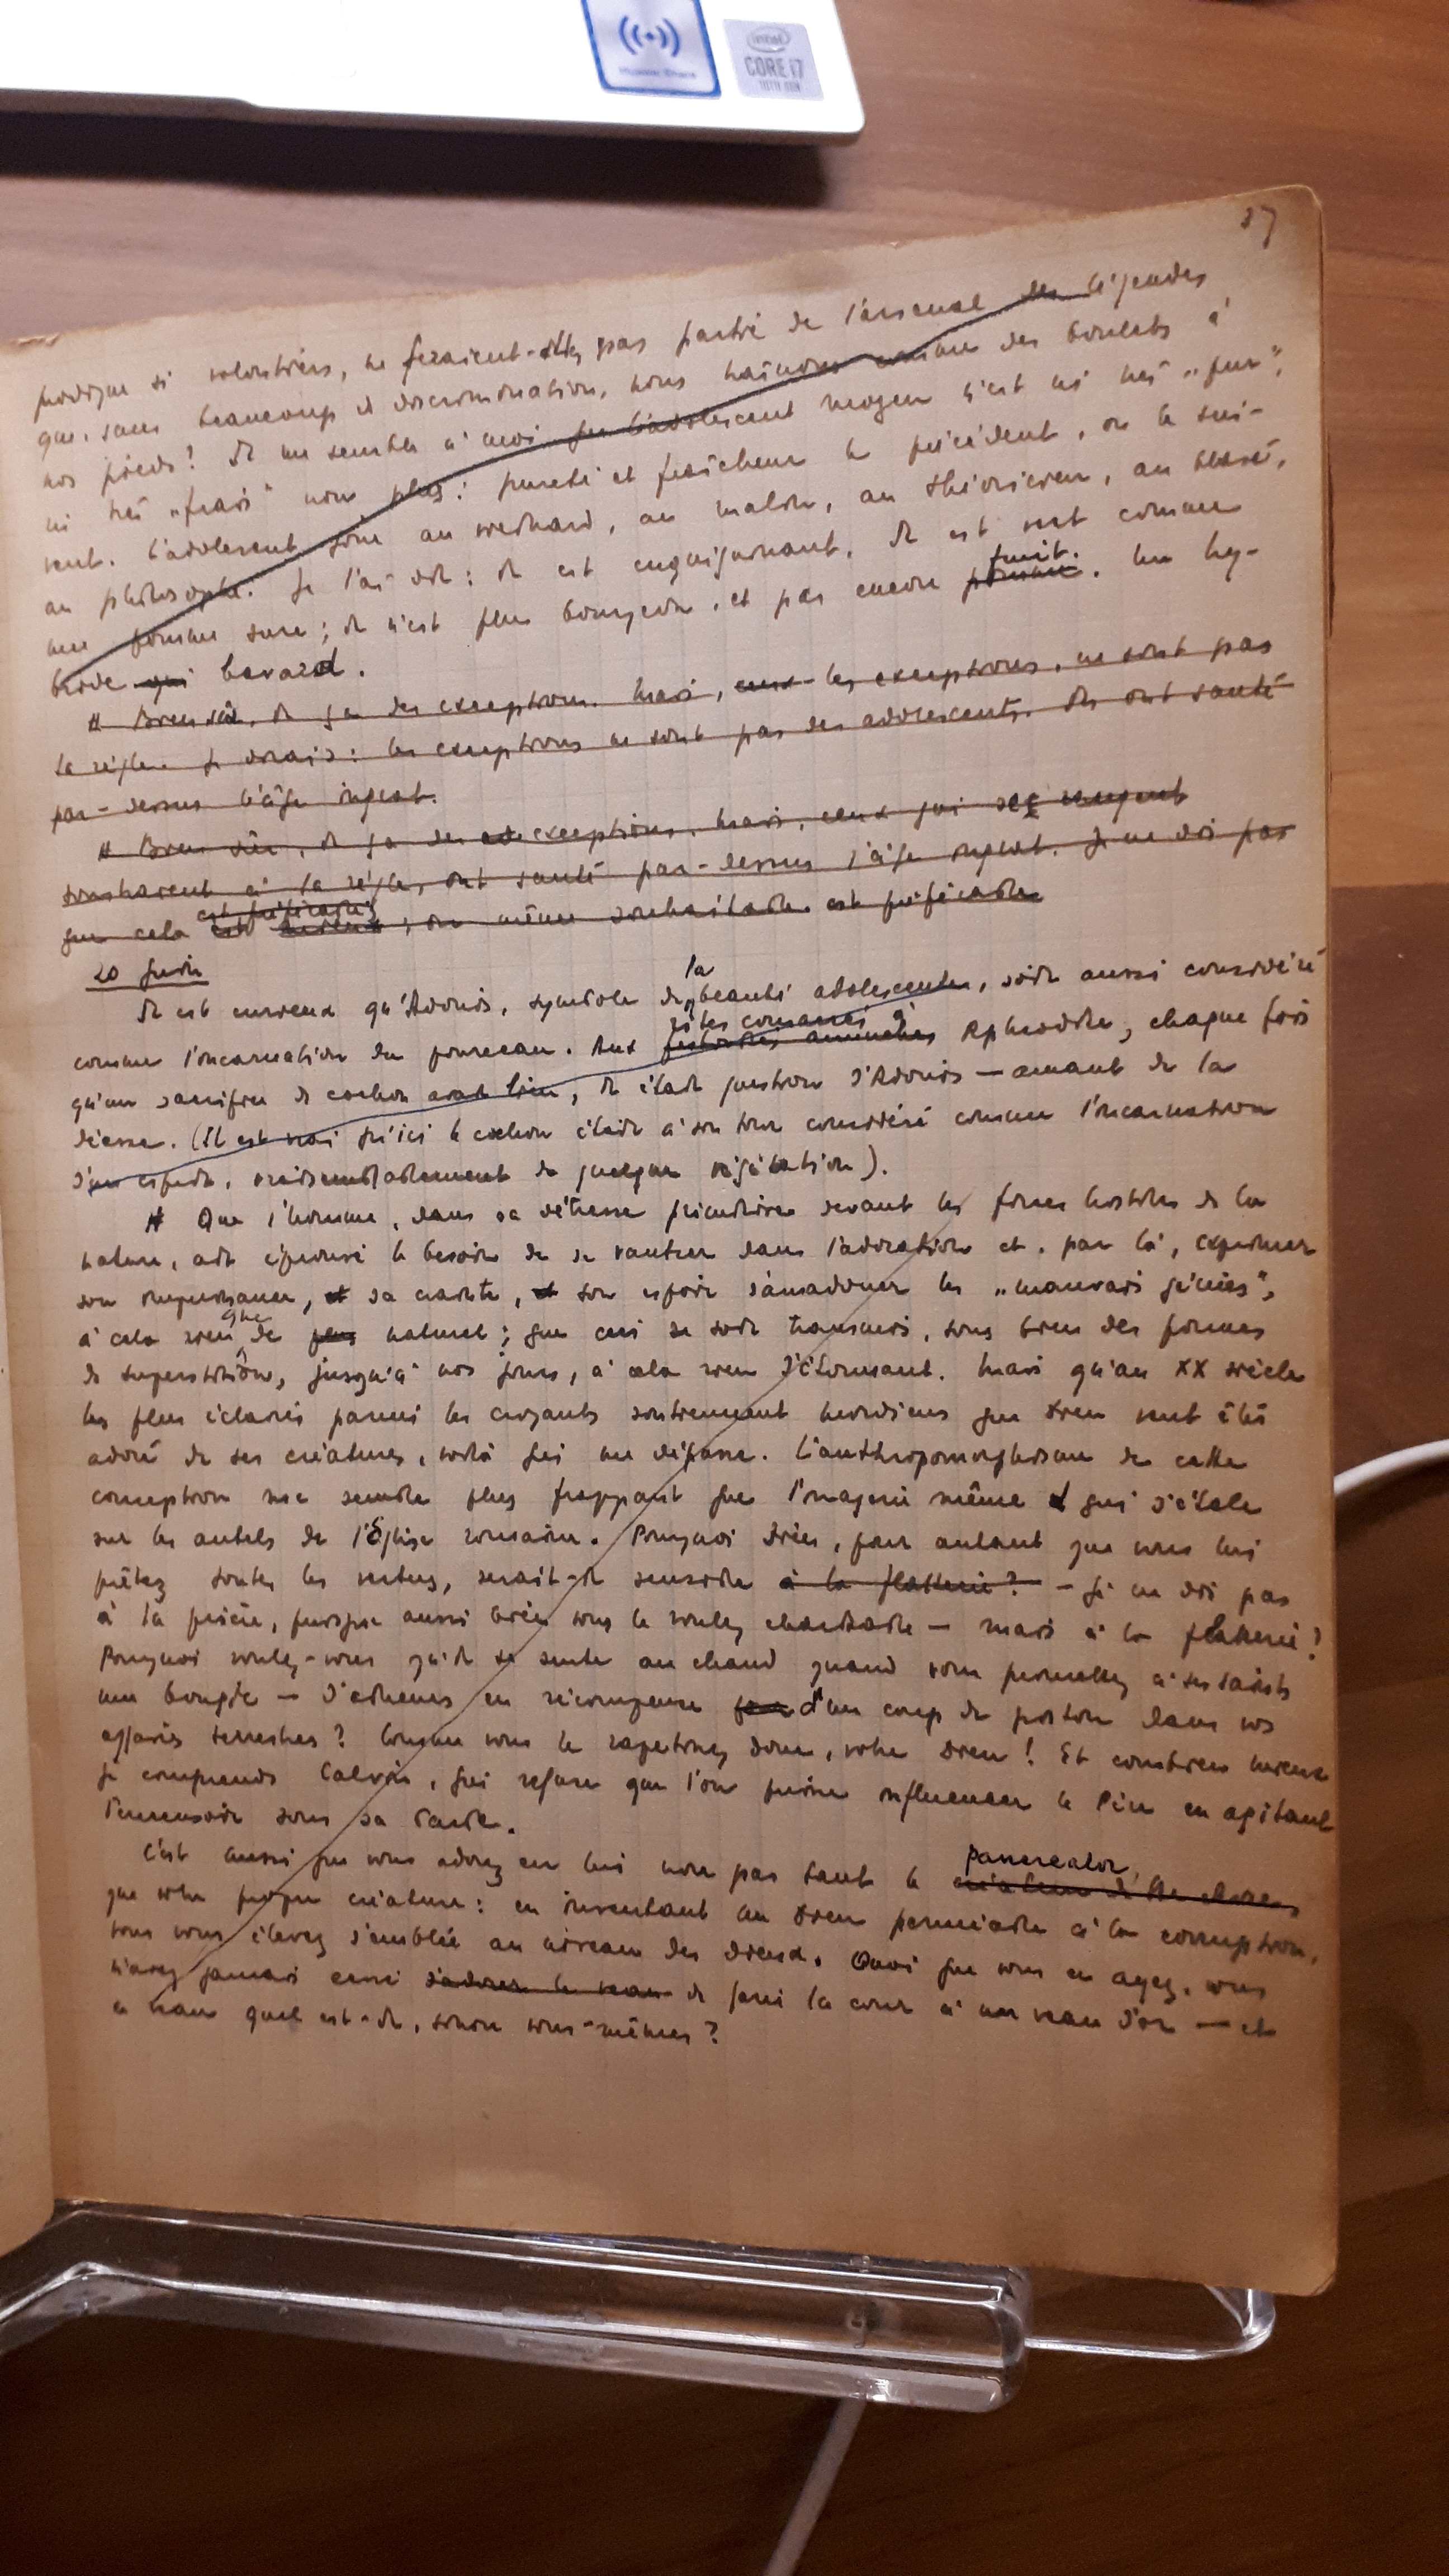 Huawei Share
intel
CORE i7
10TH GEN
37
prodigue si volontiers, ne feraient-elles pas partie de l'arsenal des légendes
que, sans beaucoup de discrimination, nous traînons comme des boulets à
nos pieds? Il me semble à moi que l'adolescent moyen n'est ni très „pur",
ni très „frais" non plus: pureté et fraîcheur le précèdent, ou le sui-
vent. L'adolescent joue au au malin, au théoricien, au blasé,
au philosophe. Je l'ai dit: il est enquiquinant. Il est vert comme
une pomme sure; il n'est plus bourgeon, et pas encore pomme fruit. Un hy-
bride qui bavard.
# Bien sûr, il y a des exceptions. Mais, eux les exceptions, ne sont pas
la règle. Je dirais: les exceptions ne sont pas des adolescents. Ils ont sauté
par-dessus l'âge ingrat.
# Bien sûr, il y a des exceptions. Mais, ceux qui
à la règle, ont sauté par-dessus l'âge ingrat. Je ne dis pas
que cela est est préférable mieux; ou même souhaitable. est préférable
20 juin
Il est curieux qu'Adonis, symbole de la beauté adolescente, soit aussi considéré
comme l'incarnation du pourceau. Aux rites consacrés à Aphrodite, chaque fois
qu'un sacrifice de cochon avait lieu, il était question d'Adonis — amant de la
déesse. (Il est vrai qu'ici le cochon était à son tour considéré comme l'incarnation
d'un esprit, vraisemblablement de quelque végétation).
# Que l'homme, dans sa détresse primitive devant les forces hostiles de la
nature, ait éprouvé le besoin de se vautrer dans l'adoration et, par là, exprimer
son impuissance, et sa crainte, et son espoir d'amadouer les „mauvais génies",
à cela rien que de plus naturel; que ceci se soit transmis, sous bien des formes
de superstition, jusqu'à nos jours, à cela rien d'étonnant. Mais qu'au XX siècle
les plus éclairés parmi les croyants soutiennent mordicus que Dieu veut être
adoré de ses créatures, voilà qui me dépasse. L'anthropomorphisme de cette
conception me semble plus frappant que l'imagerie même qui s'étale
sur les autels de l'Église romaine. Pourquoi Dieu, pour autant que vous lui
prêtez toutes les vertus, serait-il sensible à la flatterie? — je ne dis pas
à la prière, puisque aussi bien vous le voulez charitable — mais à la flatterie?
Pourquoi voulez-vous qu'il se sente au chaud quand vous promettez à ses saints
une bougie — d'achever en récompense pour d'un coup de piston dans vos
affaires terrestres? Comme vous le rapetissez donc, votre Dieu! Et combien mieux
je comprends Calvin, qui refuse que l'on puisse influencer le Père en agitant
l'encensoir sous sa barbe.
C'est aussi que vous adorez en lui non pas tant le créateur de Pancreator,
que votre propre créature: en inventant un Dieu perméable à la corruption,
vous vous élevez d'emblée au niveau des dieux. Quoi que vous en ayez, vous
n'avez jamais cessé d'adorer le veau de faire la cour à un veau d'or — et
ce veau quel est-il, sinon vous-mêmes?